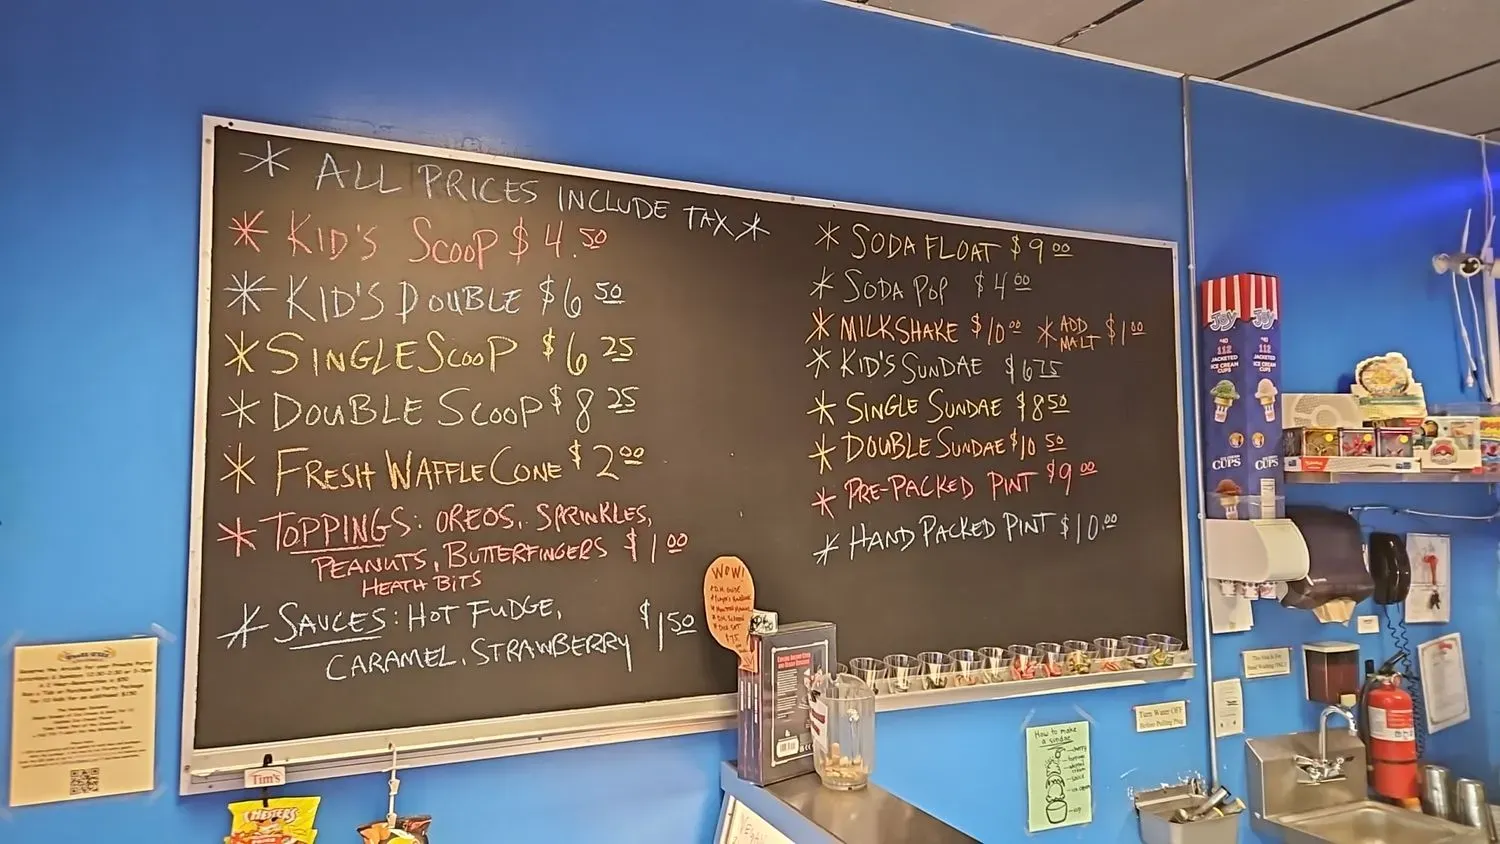 * ALL PRICES INCLUDE TAX *
* KID'S SCOOP $4.50
* KID'S DOUBLE $6 50
* SINGLE SCOOP $6 25
* DOUBLE SCOOP $8 25
* FRESH WAFFLE CONE $2 00
* TOPPINGS: OREOS, SPRINKLES,
PEANUTS, BUTTERFINGERS $1 00
HEATH BITS
* SAUCES: HOT FUDGE,
CARAMEL, STRAWBERRY $1 50
* SODA FLOAT $9 00
* SODA POP $4 00
* MILKSHAKE $10 00 * ADD MALT $1 00
* KID'S SUNDAE $6 75
* SINGLE SUNDAE $8 50
* DOUBLE SUNDAE $10 50
* PRE-PACKED PINT $9 00
* HAND PACKED PINT $10.00
WOW!
$75
Tim's
CHESTERS
How to make
a sundae
cherry
whipped
cream
sauce
ice cream
cup
Turn Water OFF
Before Pulling Plug
Hand Washing ONLY
JOY
JOY
112
JACKETED
ICE CREAM
CUPS
112
JACKETED
ICE CREAM
CUPS
CUPS
CUPS
VEGAN